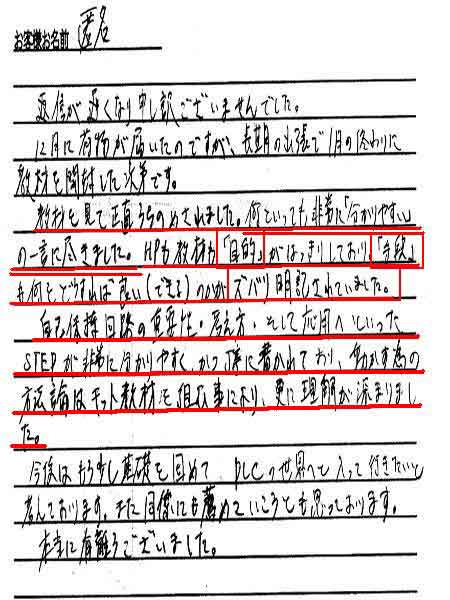 お客様お名前 匿名
返信が遅くなり申し訳ございませんでした。
12月に荷物が届いたのですが、長期の出張で1月の終わりに
教材を開封した次第です。
教材を見て正直うちのめされました。何といっても非常に「分かりやすい」
の一言に尽きました。HPも教材も「目的」がはっきりしており、「手段」
も何をどうすれば良い(できる)のかがズバリ明記されていました。
自己保持回路の重要性・考え方、そして応用へといった
STEPが非常に分かりやすく、かつ丁寧に書かれており、動かす為の
方法論はキット教材を組む事により、更に理解が深まりまし
た。
今後はもう少し基礎を固めて、PLCの世界へと入って行きたいと
考えております。また同僚にも薦めていこうとも思っております。
本当に有難うございました。